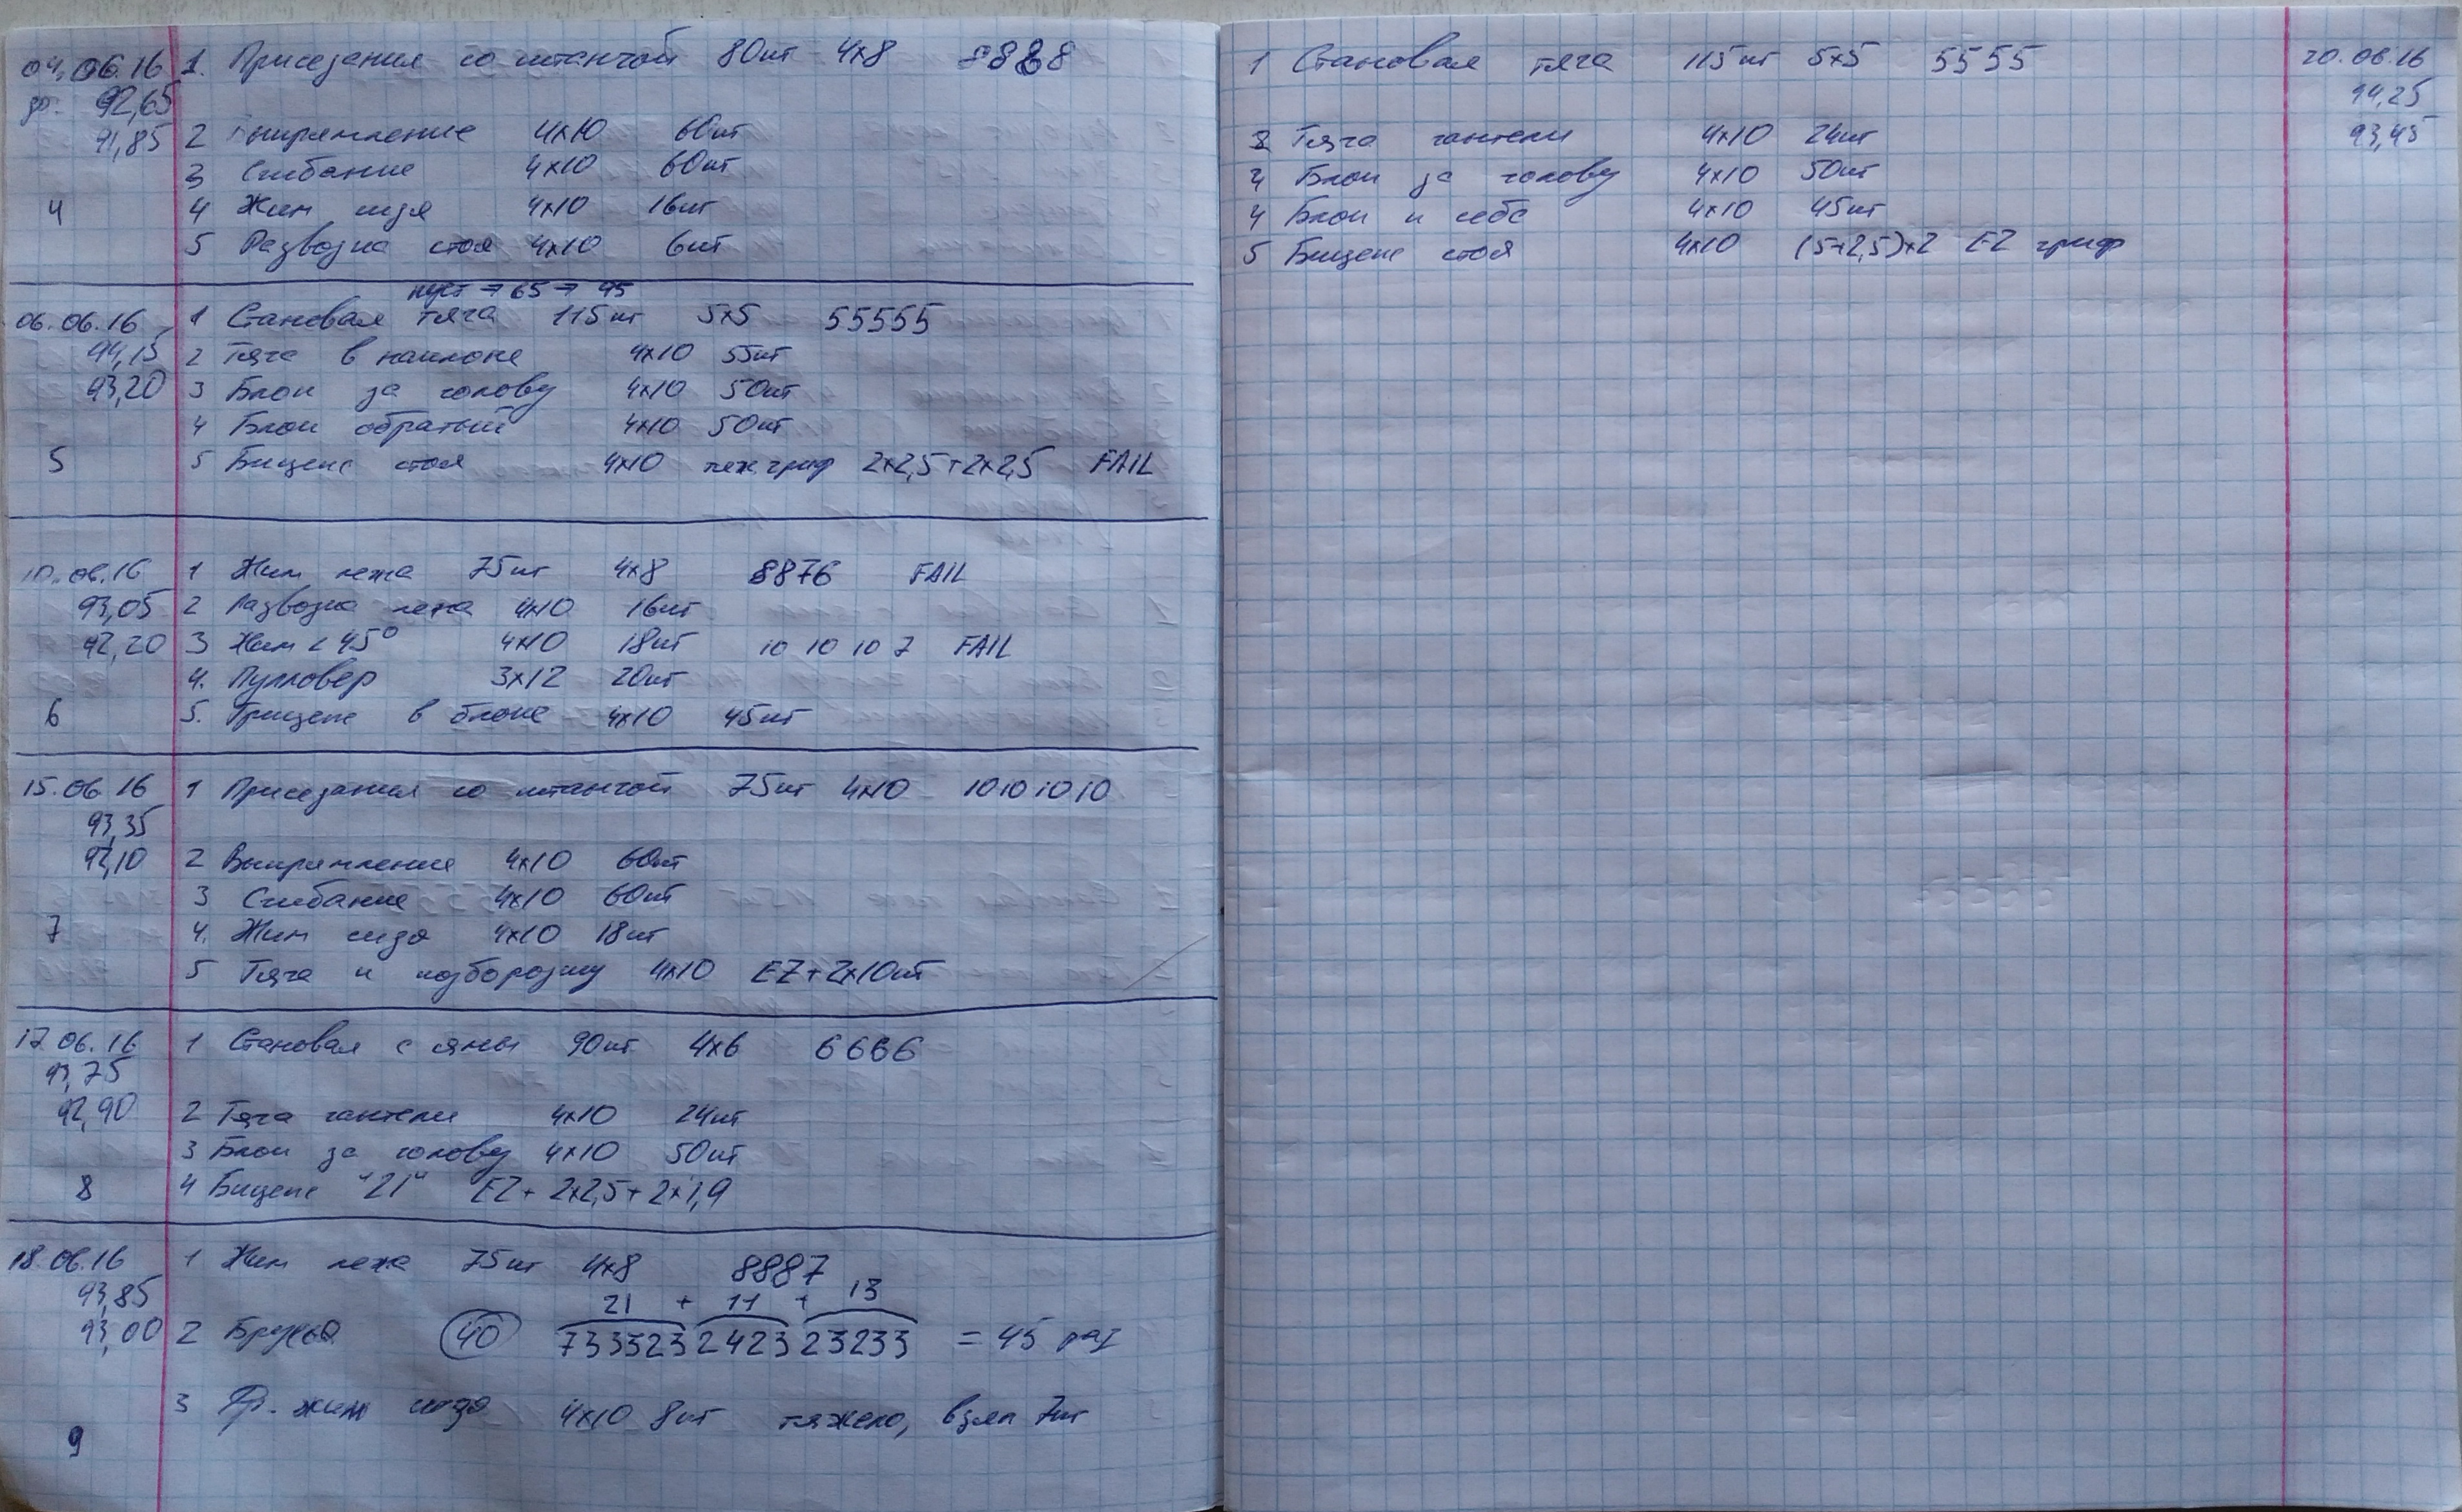 04.06.16 1. Приседания со штангой 80кг 4x8 8888
до. 92,65
91,85 2 Выпрямление 4x10 60кг
3 Сгибание 4x10 60кг
4 4 Жим сидя 4x10 16кг
5 Разводка стоя 4x10 6кг
пуст → 65 → 95
06.06.16 1 Становая тяга 115кг 5x5 55555
94,15 2 Тяга в наклоне 4x10 55кг
93,20 3 Блок за голову 4x10 50кг
4 Блок обратный 4x10 50кг
5 5 Бицепс стоя 4x10 гриф 2x2,5+2x2,5 FAIL
10.06.16 1 Жим лежа 75кг 4x8 8876 FAIL
93,05 2 Разводка лежа 4x10 16кг
92,20 3 Жим < 45° 4x10 18кг 10 10 10 7 FAIL
4. Пулловер 3x12 20кг
6 5. Трицепс в блоке 4x10 45кг
15.06.16 1 Приседания со штангой 75кг 4x10 10 10 10 10
93,35
92,10 2 Выпрямление 4x10 60кг
3 Сгибание 4x10 60кг
7 4. Жим сидя 4x10 18кг
5 Тяга к подбородку 4x10 EZ+2x10кг
17.06.16 1 Становая с ямы 90кг 4x6 6666
93,75
92,90 2 Тяга гантели 4x10 24кг
3 Блок за голову 4x10 50кг
8 4 Бицепс "21" EZ+ 2x2,5+ 2x1,9
18.06.16 1 Жим лежа 75кг 4x8 8887
93,85 21 + 11 + 13
93,00 2 Брусья 40 733323 2423 23233 = 45 раз
3 Фр. жим сидя 4x10 8кг тяжело, взял 7кг
9
1 Становая тяга 115кг 5x5 5555 20.06.16
94,25
2 Тяга гантели 4x10 24кг 93,45
3 Блок за голову 4x10 50кг
4 Блок к себе 4x10 45кг
5 Бицепс стоя 4x10 (5+2,5)x2 EZ гриф